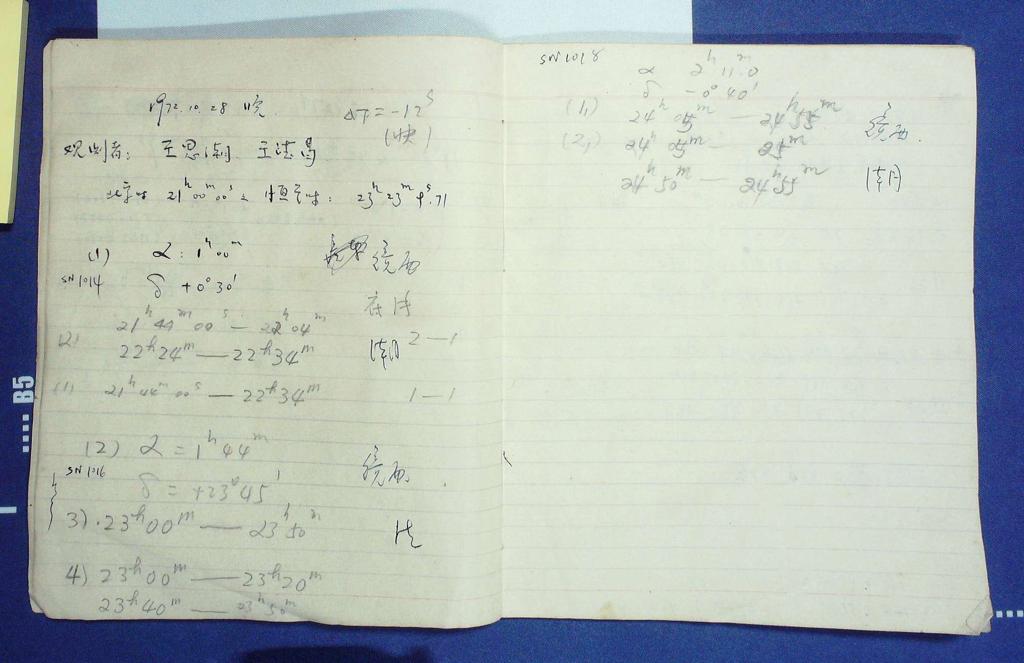 1972.10.28 晚 ΔT=-12s
(快)
观测者: 王思潮 王法昌
北京时 21h00m00s 恒星时: 23h23m9s.71
(1) α: 1h00m 镜西
SN1014 δ +0°30'
21h44m00s — 22h04m
2) 22h24m — 22h34m 2—1
(1) 21h44m00s — 22h34m 1—1
(2) α = 1h44m 镜西
SN1016 δ = +23°45'
3) 23h00m — 23h50m
4) 23h00m — 23h20m
23h40m — 23h50m
SN1018 α 2h11m.0
δ -0°40'
(1) 24h05m — 24h55m 镜西.
(2) 24h05m — 25m
24h50m — 24h55m
B5